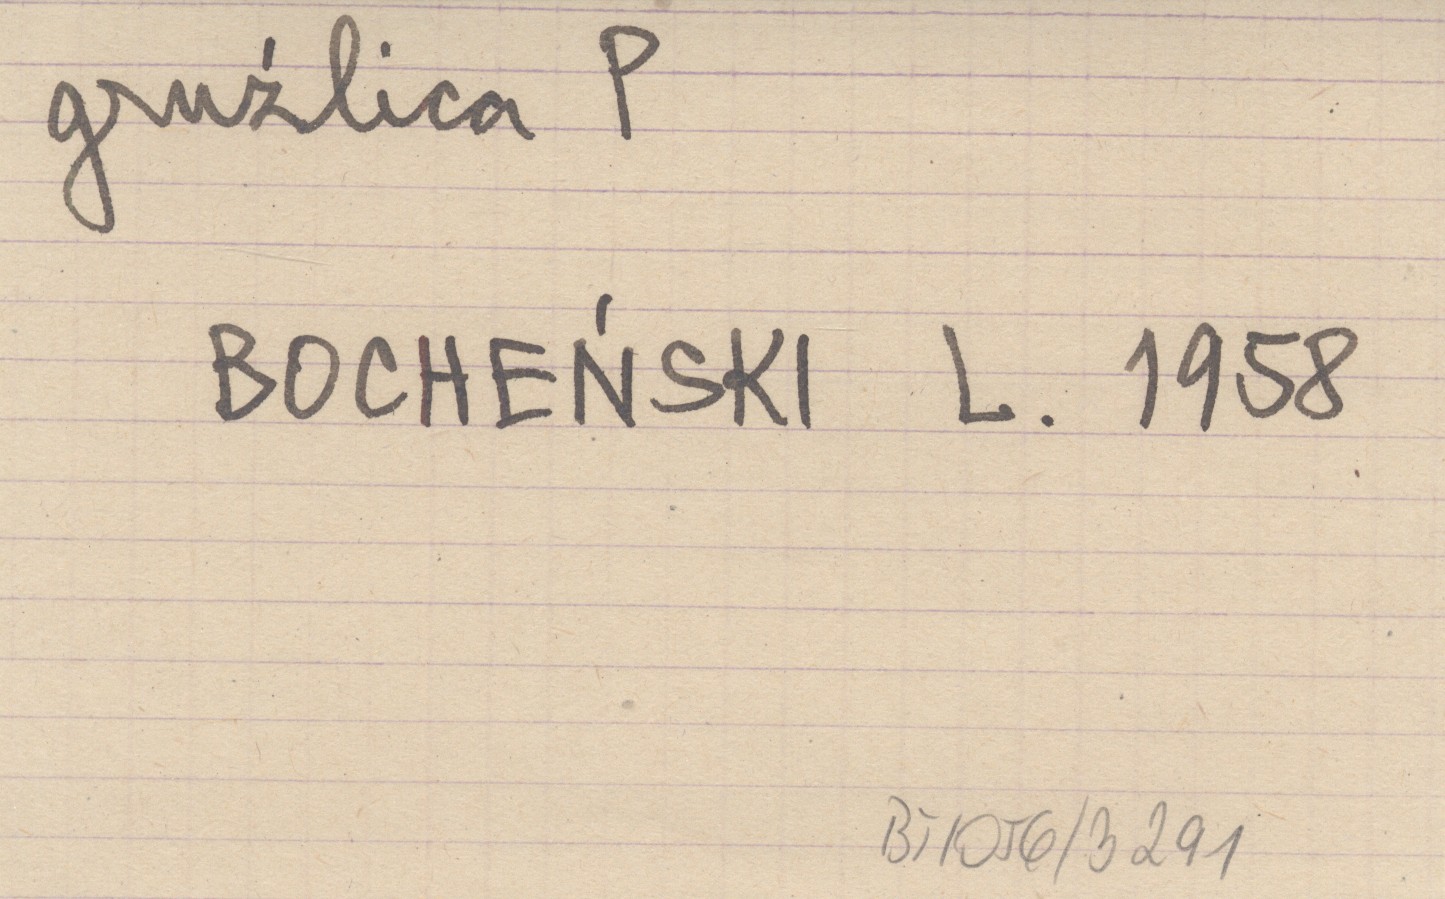 gruźlica P
BOCHEŃSKI L. 1958
BŤ/1056/3 291